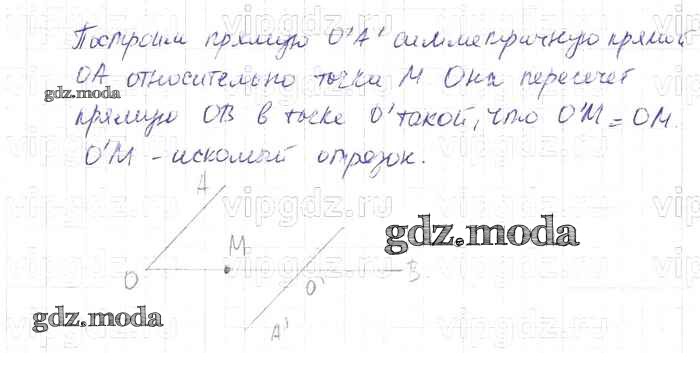 Построим прямую O'A' симметричную прямой
OA относительно точки M. Она пересечёт
gdz.moda
прямую OB в точке O' такой, что O'M = OM.
O'M - искомый отрезок.
A
vipgdz.ru
gdz.moda
M
O
O'
B
gdz.moda
A'